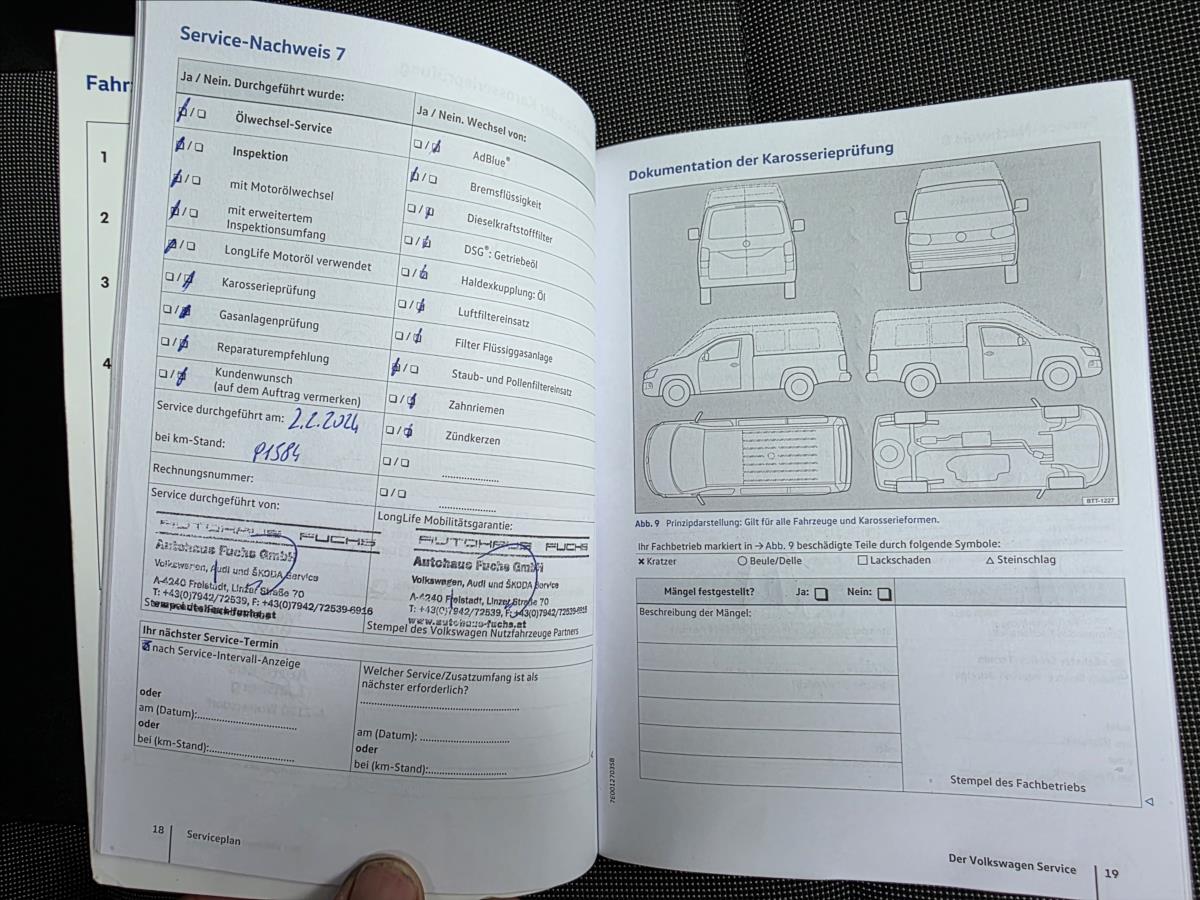 Fahr
1
2
3
4
Service-Nachweis 7
Ja / Nein. Durchgeführt wurde:
Ölwechsel-Service
Inspektion
mit Motorölwechsel
mit erweitertem
Inspektionsumfang
LongLife Motoröl verwendet
Karosserieprüfung
Gasanlagenprüfung
Reparaturempfehlung
Kundenwunsch
(auf dem Auftrag vermerken)
Service durchgeführt am: 2.2.2024
bei km-Stand: 91584
Rechnungsnummer:
Service durchgeführt von:
AUTOHAUS FUCHS
Autohaus Fuchs GmbH
Volkswagen, Audi und ŠKODA Service
A-4240 Freistadt, Linzer Straße 70
T: +43(0)7942/72539, F: +43(0)7942/72539-6916
Ja / Nein. Wechsel von:
AdBlue®
Bremsflüssigkeit
Dieselkraftstofffilter
DSG®: Getriebeöl
Haldexkupplung: Öl
Luftfiltereinsatz
Filter Flüssiggasanlage
Staub- und Pollenfiltereinsatz
Zahnriemen
Zündkerzen
LongLife Mobilitätsgarantie:
AUTOHAUS FUCHS
Autohaus Fuchs GmbH
Volkswagen, Audi und ŠKODA Service
A-4240 Freistadt, Linzer Straße 70
T: +43(0)7942/72539, F: +43(0)7942/72539-6916
www.autohaus-fuchs.at
Stempel des Volkswagen Nutzfahrzeuge Partners
Ihr nächster Service-Termin
nach Service-Intervall-Anzeige
oder
am (Datum):
oder
bei (km-Stand):
Welcher Service/Zusatzumfang ist als
nächster erforderlich?
am (Datum):
oder
bei (km-Stand):
18
Serviceplan
Dokumentation der Karosserieprüfung
BTT-1227
Abb. 9 Prinzipdarstellung: Gilt für alle Fahrzeuge und Karosserieformen.
Ihr Fachbetrieb markiert in → Abb. 9 beschädigte Teile durch folgende Symbole:
× Kratzer ○ Beule/Delle □ Lackschaden △ Steinschlag
Mängel festgestellt? Ja: Nein:
Beschreibung der Mängel:
Stempel des Fachbetriebs
7E0012703SB
Der Volkswagen Service
19